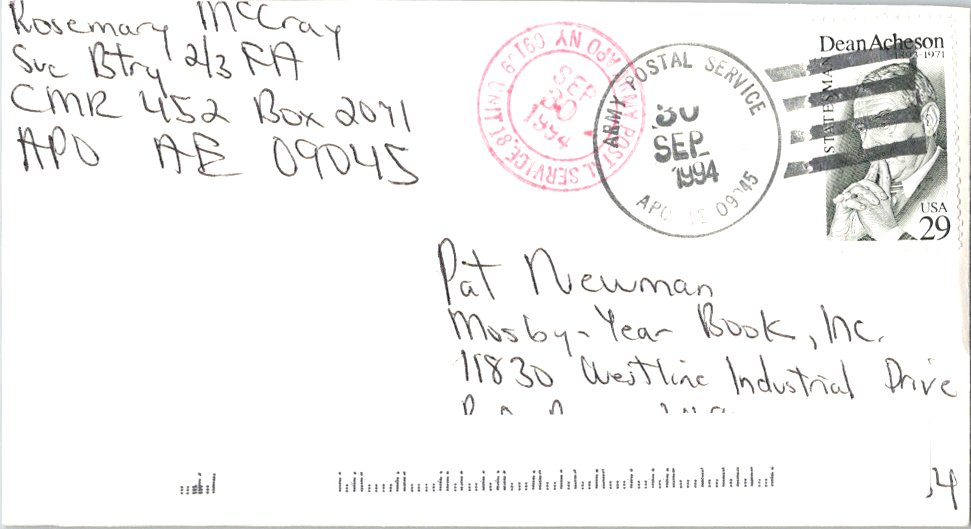 Rosemary McCray
Svc Btry 2/3 FA
CMR 452 Box 2071
APO AE 09045
ARMY POSTAL SERVICE
30
SEP
1994
APO 09045
SEP
30
1994
Dean Acheson
1893-1971
STATESMAN
USA
29
Pat Newman
Mosby-Year Book, Inc.
11830 Westline Industrial Drive